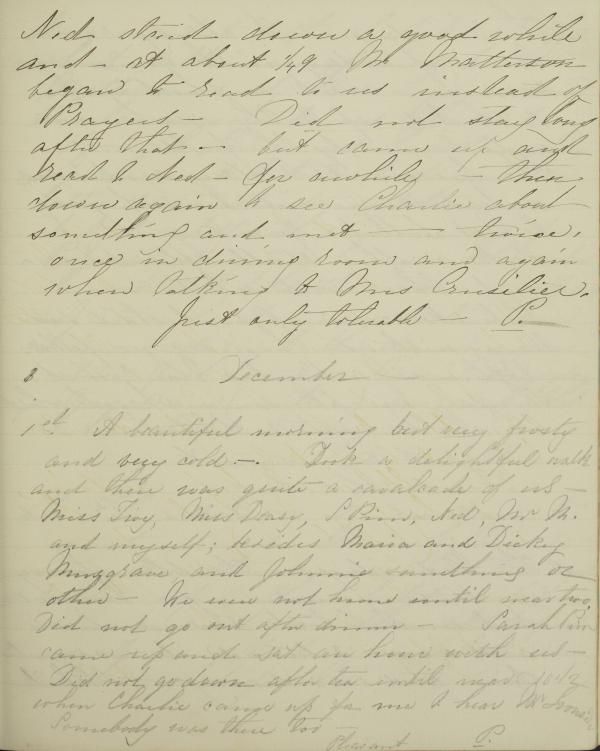 Ned staid down a good while
and - at about 1/4 9 Mr Matterson
began to read to us instead of
Prayers - Did not stay long
after that - but came up and
read to Ned - for awhile - then
down again to see Charlie about
something and met - twice,
once in dining room and again
when talking to Mrs
Just only tolerable - P.
December
1st. A beautiful morning but very frosty
and very cold -. Took a delightful walk
and there was quite a cavalcade of us -
Miss Miss S Pim, Ned, Mr M.
and myself; besides Maria and Dicky
Musgrave and Johnnie something or
other - We were not home until near two.
Did not go out after dinner - Sarah Pim
came up and sat an hour with us -
Did not go down after tea until near
when Charlie came up for me to hear Mr
Somebody was there too -
Pleasant P.